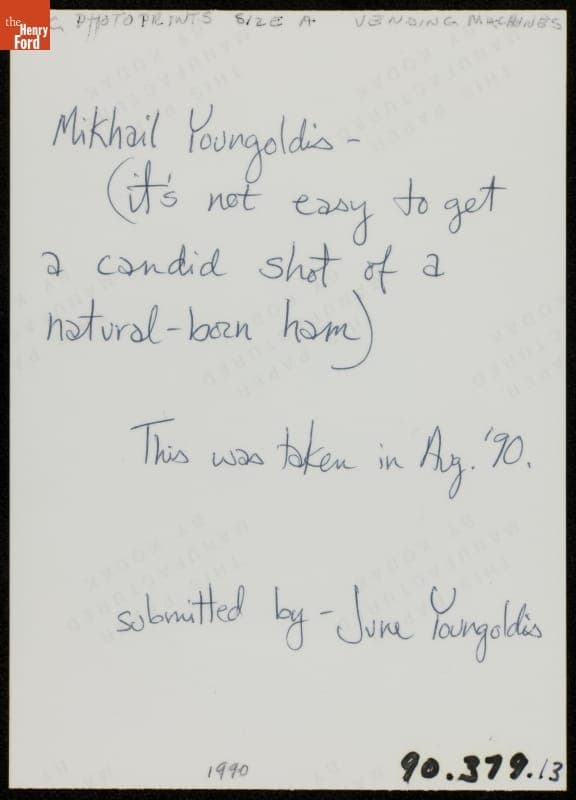 the
Henry
Ford
PHOTOPRINTS SIZE A VENDING MACHINES
Mikhail Youngoldis -
(it's not easy to get
a candid shot of a
natural-born ham)
This was taken in Aug. '90.
submitted by - June Youngoldis
1990
90.379.13
THIS PAPER
MANUFACTURED
BY KODAK